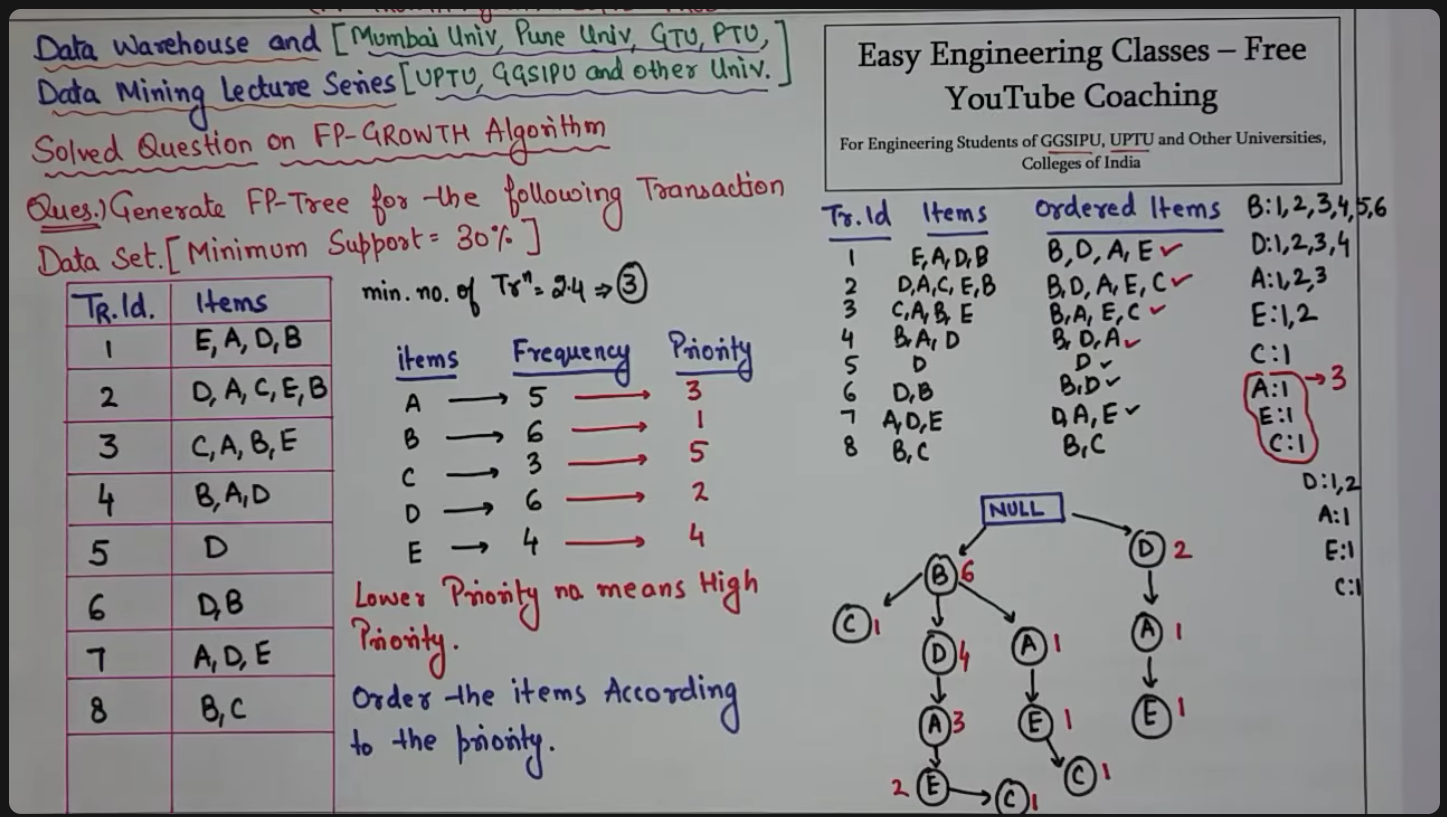 Data Warehouse and [Mumbai Univ, Pune Univ, GTU, PTU,
Data Mining Lecture Series [UPTU, GGSIPU and other Univ.]
Solved Question on FP-GROWTH Algorithm
Ques.) Generate FP-Tree for the following Transaction
Data Set. [Minimum Support = 30%]
TR.Id. Items
1 E, A, D, B
2 D, A, C, E, B
3 C, A, B, E
4 B, A, D
5 D
6 D, B
7 A, D, E
8 B, C
min. no. of Trⁿ = 2.4 ⇒ 3
items Frequency Priority
A → 5 → 3
B → 6 → 1
C → 3 → 5
D → 6 → 2
E → 4 → 4
Lower Priority no means High
Priority.
Order the items According
to the priority.
Easy Engineering Classes – Free
YouTube Coaching
For Engineering Students of GGSIPU, UPTU and Other Universities,
Colleges of India
Tr.Id Items Ordered Items
1 E, A, D, B B, D, A, E ✓
2 D, A, C, E, B B, D, A, E, C ✓
3 C, A, B, E B, A, E, C ✓
4 B, A, D B, D, A ✓
5 D D ✓
6 D, B B, D ✓
7 A, D, E D, A, E ✓
8 B, C B, C
B:1,2,3,4,5,6
D:1,2,3,4
A:1,2,3
E:1,2
C:1
A:1 → 3
E:1
C:1
D:1,2
A:1
E:1
C:1
NULL
B 6 D 2
C 1 D 4 A 1 A 1
A 3 E 1 E 1
2 E C 1 C 1